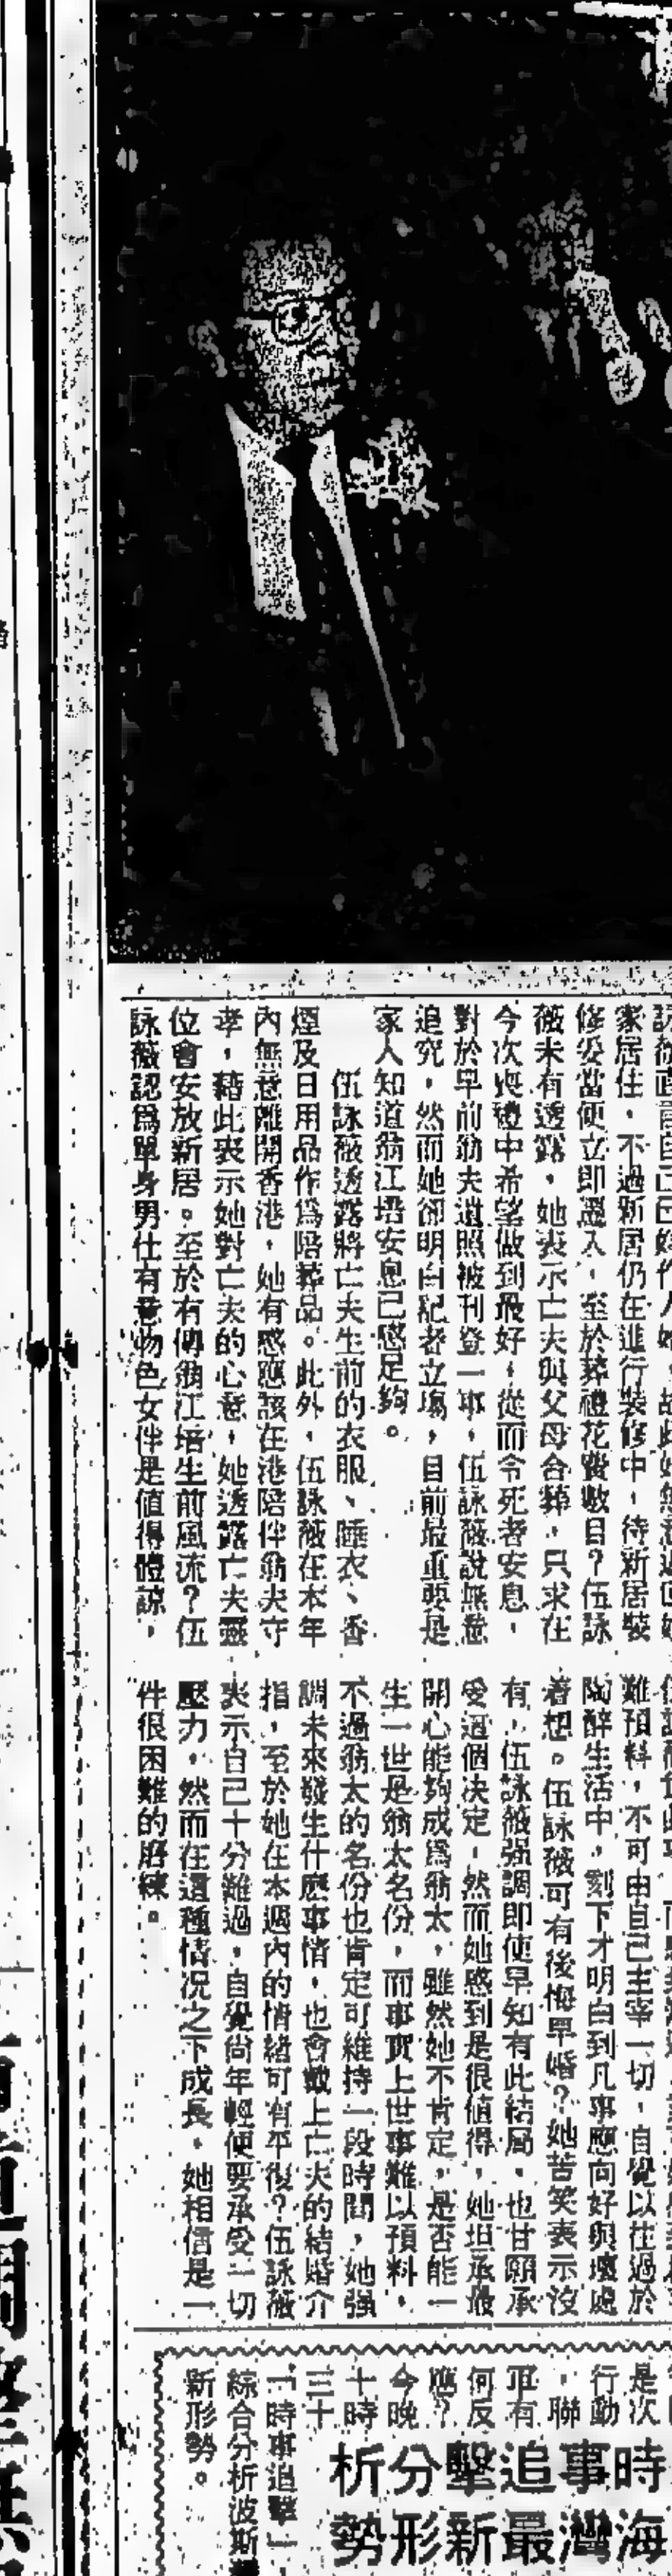 家居住，不過新居仍在進行裝修中，待新居裝
修妥當便立即遷入，至於葬禮花費數目？伍詠
薇未有透露，她表示亡夫與父母合葬，只求在
今次喪禮中希望做到最好，從而令死者安息，
對於早前翁夫遺照被刊登一事，伍詠薇說無意
追究，然而她卻明白記者立場，目前最重要是
家人知道翁江培安息已感足夠。
伍詠薇透露將亡夫生前的衣服、睡衣、香
煙及日用品作為陪葬品。此外，伍詠薇在本年
內無意離開香港，她有感應該在港陪伴翁夫守
孝，藉此表示她對亡夫的心意，她透露亡夫靈
位會安放新居。至於有傳翁江培生前風流？伍
詠薇認爲單身男仕有意物色女伴是值得體諒，
難預料，不可由自己主宰一切，自覺以往過於
陶醉生活中，刻下才明白到凡事應向好與壞處
着想。伍詠薇可有後悔早婚？她苦笑表示沒
有，伍詠薇强調即使早知有此結局，也甘願承
受這個決定，然而她感到是很值得，她坦承最
開心能夠成爲翁太，雖然她不肯定，是否能一
生一世是翁太名份，而事實上世事難以預料，
不過翁太的名份也肯定可維持一段時間，她强
調未來發生什麼事情，也會戴上亡夫的結婚介
指，至於她在本週內的情緒可有平復？伍詠薇
表示自己十分難過，自覺尚年輕便要承受一切
壓力，然而在這種情況之下成長，她相信是一
件很困難的磨練。
時事追擊分析
海灣最新形勢
是次
行動
，聯
軍有
何反
應？
今晚
十時
三十
「時事追擊」
綜合分析波斯
新形勢。